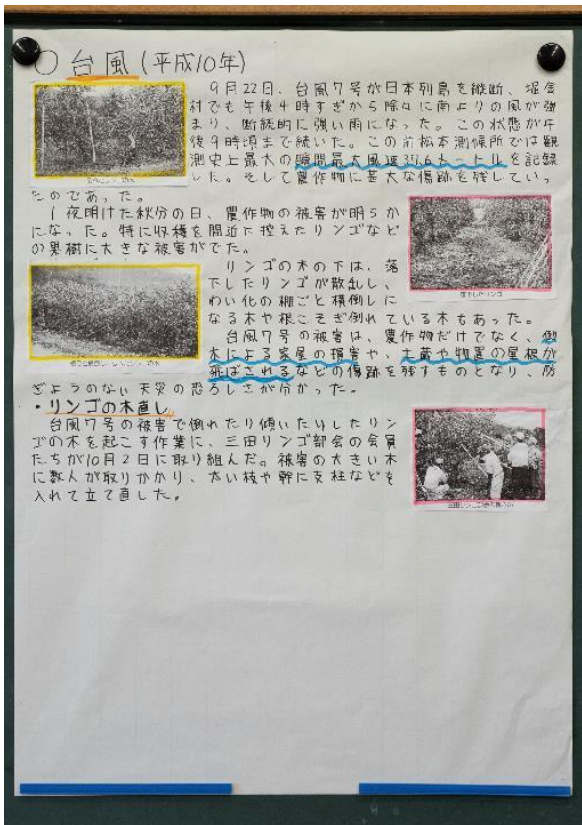 ○台風(平成10年)
9月22日、台風7号が日本列島を縦断、堀金
村でも午後4時すぎから除々に南よりの風が強
まり、断続的に強い雨になった。この状態が午
後9時頃まで続いた。この前松本測候所では観
測史上最大の瞬間最大風速37.6メートルを記録
した。そして農作物に甚大な傷跡を残していっ
たのであった。
1夜明けた秋分の日、農作物の被害が明らか
になった。特に収穫を間近に控えたリンゴなど
の果樹に大きな被害がでた。
リンゴの木の下は、落
下したリンゴが散乱し、
わい化の棚ごと横倒しに
なる木や根こそぎ倒れている木もあった。
台風7号の被害は、農作物だけでなく、倒
木による家屋の損害や、土蔵や物置の屋根が
飛ばされるなどの傷跡を残すものとなり、防
ぎようのない天災の恐ろしさが分かった。
・リンゴの木直し
台風7号の被害で倒れたり傾いたりしたリン
ゴの木を起こす作業に、三田リンゴ部会の会員
たちが10月2日に取り組んだ。被害の大きい木
に数人が取りかかり、太い枝や幹に支柱などを
入れて立て直した。
落下したリンゴ